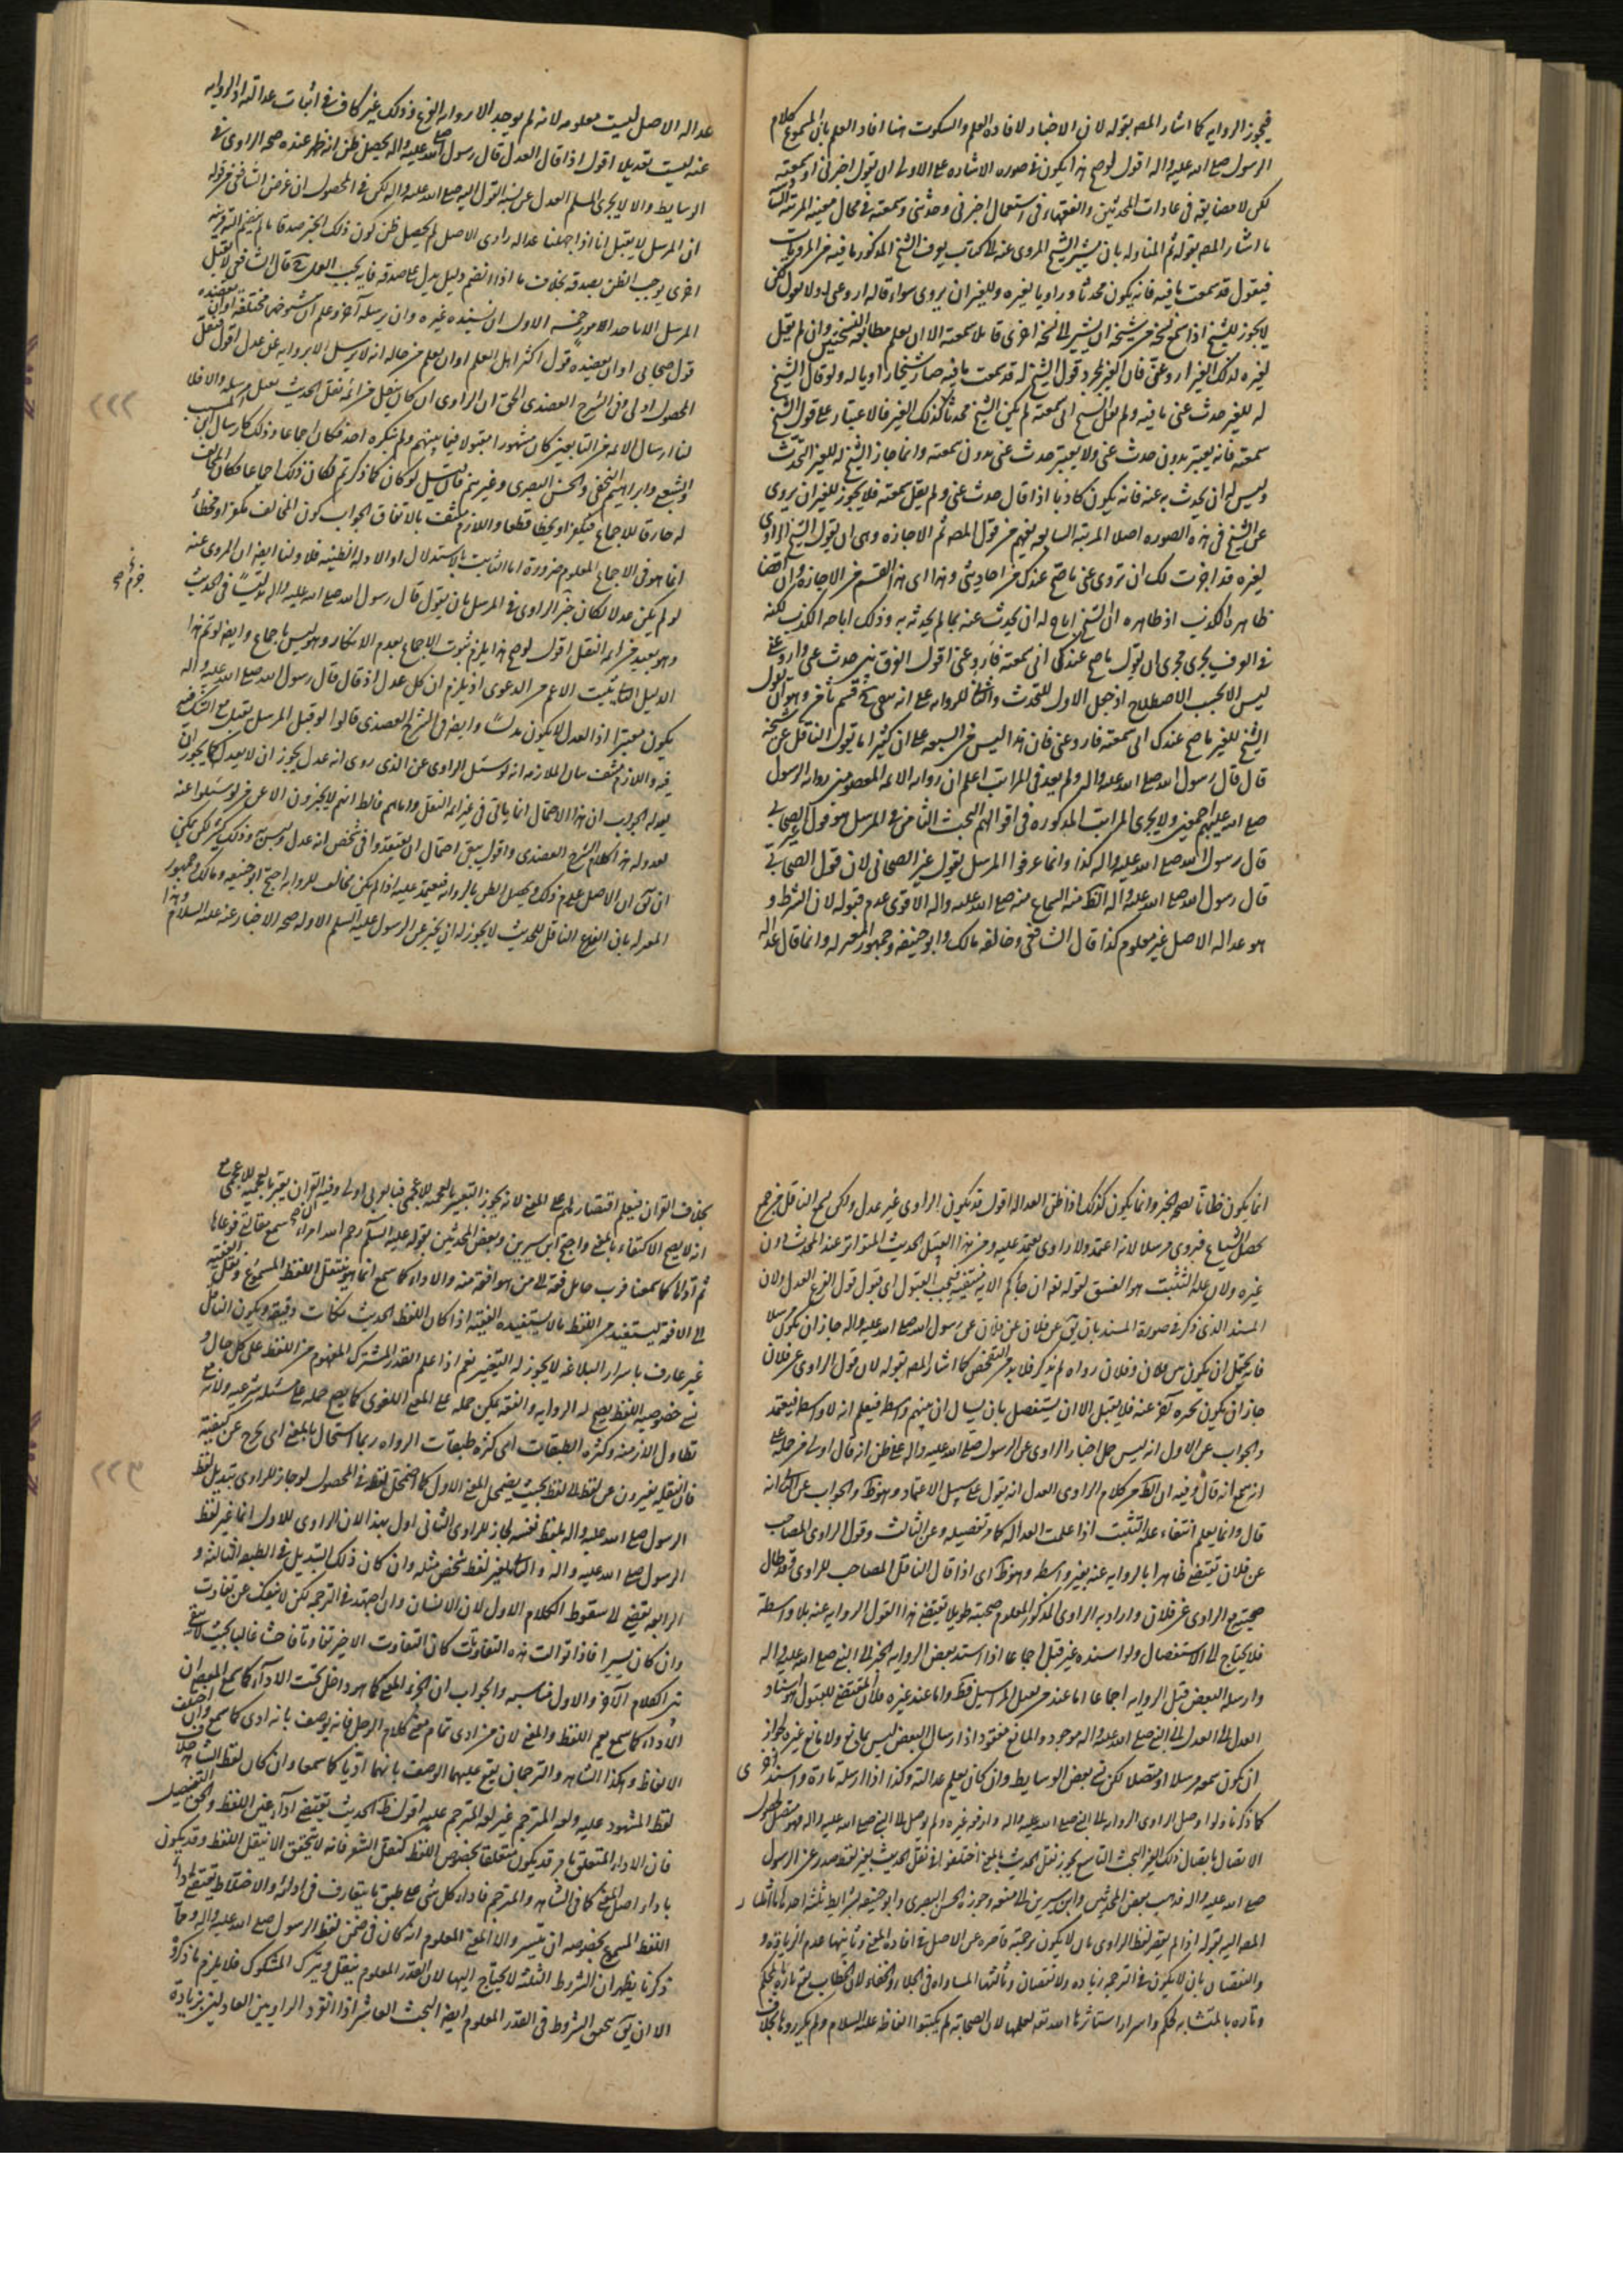 فيجوز الروايه كما اشار المصه بقوله لان الاخبار لافادة العلم والسكوت هنا افاد العلم بان المسموع كلام
الرسول صلى الله عليه واله اقول لوصح هذا يكون في صوره الاشاره على الاولى ان يقول اخبرني او سمعته
لكن لا مضايقه في عادات المحدثين والفقهاء في استعمال اخبرني وحدثني وسمعته في محال معينه المرتبه
ما اشار المصه بقوله ثم المناوله بان يشير الشيخ المروي عنه الى كتاب يعرف الشيخ المذكور ما فيه من المرويات
فيقول قد سمعت ما فيه فانه يكون محدثا وراويا لغيره وللغير ان يروي سواء قال له اروه عني او لا يقول لكن
لا يجوز للشيخ اذا سمع نسخه من شيخه ان يشير الى نسخه اخرى قائلا سمعته الا ان يعلم مطابقه النسختين وان لم يقل
لغيره لذلك الغير اروه عني فان الغير بمجرد قول الشيخ له قد سمعت ما فيه صار شيخا راويا له ولو قال الشيخ
له للغير حدث عني ما فيه ولم يقل الشيخ اني سمعته لم يكن الشيخ محدثا كذلك الغير فالاعتبار على قول الشيخ
سمعته فانه يعتبر بدون حدث عني ولا يعتبر حدث عني بدون سمعته وانما جاز الشيخ له للغير التحدث
وليس له ان يحدث به عنه فانه يكون كاذبا اذا قال حدث عني ولم يقل سمعته فلا يجوز للغير ان يروي
عن الشيخ في هذه الصوره اصلا المرتبه السابعه يفهم من قول المصه ثم الاجازه وهي ان يقول الشيخ الراوي
لغيره قد اجزت لك ان تروي عني ما صح عندك من احاديثي وهذا اي هذا القسم من الاجازه وان اقتضا
ظاهره الكذب اذ ظاهره ان الشيخ اباح له ان يحدث عنه بما لم يحدثه به وذلك اباحه الكذب لكنه
في العرف يجري مجرى ان يقول ما صح عندك اني سمعته فاروه عني اقول الفرق بين حدث عني واروه عني
ليس الا بحسب الاصطلاح اذ جعل الاول للتحدث والثاني للروايه على انه بقي قسم ثامن وهو ان يقول
الشيخ للغير ما صح عندك اني سمعته فاروه عني فان هذا ليس من السبعه على ان كثيرا ما يقول الناقل عن شيخه
قال قال رسول الله صلى الله عليه واله ولم يعد في المراتب اعلم ان روايه الائمه المعصومين روايه الرسول
صلى الله عليهم اجمعين ولا يجري المراتب المذكوره في اقوالهم البحث الثامن في المرسل هو قول غير الصحابي
قال رسول الله صلى الله عليه واله كذا وانما عرفوا المرسل بقول غير الصحابي لان قول الصحابي
قال رسول الله صلى الله عليه واله الظ منه السماع منه صلى الله عليه واله الاقوى عدم قبوله لان الشرط و
هو عداله الاصل غير معلوم كذا قال الشافعي وخالفه مالك وابو حنيفه وجمهور المعتزله وانما قال عداله
عداله الاصل ليست معلومه لانه لم يوجد الا روايه الفرع وذلك غير كاف في اثبات عدالته اذ الروايه
عنه ليست تعديلا اقول اذا قال العدل قال رسول الله صلى الله عليه واله يحصل ظن انه ظهر عنده صحه الراوي في
الوسايط والا لا يجري المسلم العدل عن نسبه القول اليه صلى الله عليه واله لكن في المحصول ان غرض الشافعي من قوله
ان المرسل لا يقبل انا اذا جهلنا عداله راوي الاصل لم يحصل ظن كون ذلك الخبر صدقا ما لم ينضم اليه قرينه
اخرى يوجب الظن بصدقه بخلاف ما اذا انضم دليل يدل على صدقه فانه يجب العمل به قال الشافعي لا يقبل
المرسل الا باحد الامور خمسه الاول ان يسنده غيره وان يرسله آخر وعلم ان شيوخهما مختلفه او ان يعضده
قول صحابي او ان يعضده قول اكثر اهل العلم او ان يعلم من حاله انه لا يرسل الا بروايه عن عدل اقول فنقل
المحصول اولى وفي الشرح العضدي الحق ان الراوي ان كان ينقل من ائمه نقل الحديث يقبل مرسله والا فلا
لنا ارسال الائمه من التابعين كان مشهورا مقبولا فيما بينهم ولم ينكره احد فكان اجماعا وذلك كارسال ابن المسيب
والشعبي وابراهيم النخعي والحسن البصري وغيرهم فان قيل لو كان كما ذكرتم لكان ذلك اجماعا فكان المخالف
له خارقا للاجماع فيكفر او يخطا قطعا واللازم منتف بالاتفاق الجواب كون المخالف مكفرا ومخطئا
انما هو في الاجماع المعلوم ضرورة اما الثابت بالاستدلال او الادله الظنيه فلا ولنا ايضا ان المروي عنه
لو لم يكن عدلا لكان جزم الراوي في المرسل بان يقول قال رسول الله صلى الله عليه واله تدليسا في الحديث
وهو بعيد من ائمه النقل اقول لوصح هذا يلزم ثبوت الاجماع بعدم الانكار وهو ليس باجماع وايضا لو تم هذا
الدليل لثبت الاعم من الدعوى اذ يلزم ان كل عدل اذا قال قال رسول الله صلى الله عليه واله
يكون معتبرا اذ العدل لا يكون مدلسا وايضا في الشرح العضدي قالوا لو قبل المرسل لقبل مع الشك
فيه واللازم منتف بيان الملازمه انه لو سئل الراوي عن الذي روى انه عدل يجوز ان لا يعدله كما يجوز ان
يعدله الجواب ان هذا الاحتمال انما ياتي في غير ائمه النقل واما هم فالظ انهم لا يخبرون الا عن من لو سئلوا عنه
لعدلوه هذا كلام الشرح العضدي واقول يبقى احتمال ان يعتقدوا في شخص انه عدل وليس وذلك كثير لكن يمكن
ان يق ان الاصل عدم ذلك ويحصل الظن بالروايه فيعتمد عليه اذا لم يكن مخالف للروايه احتج ابو حنيفه ومالك وجمهور
المعتزله بان الفرع الناقل للحديث لا يجوز له ان يخبر عن الرسول عليه السلم الا وله صحه الاخبار عنه عليه السلام وهذا
انما يكون ظانا لصحه الخبر وانما يكون كذلك اذا ظن العداله اقول قد يكون الراوي غير عدل ولكن سمع الناقل من جمع
حصل الشياع فيروي مرسلا لانه اعتمد ولا راوي يعتمد عليه ومن هذا القبيل الحديث المتواتر عند المحدث دون
غيره ولان عله التثبت هو الفسق لقوله تعه ان جاءكم الايه منتفيه فيجب القبول اي قبول قول الفرع العدل ولان
المسند الذي ذكر في صورة المسند بان يق عن فلان عن فلان عن رسول الله صلى الله عليه واله جاز ان يكون مرسلا
فانه يحتمل ان يكون بين فلان وفلان رواه لم يذكر فلا بد من التفحص كما اشار المصه بقوله لان قول الراوي عن فلان
جاز ان يكون بخبره آخر عنه فلا يقبل الا ان يستفصل بان يسال ان بينهم واسطه فيعلم انه لا واسطه فيعتمد
والجواب عن الاول انه ليس حمل اخبار الراوي عن الرسول صلى الله عليه واله على ظن انه قال اولى من حمله على
انه سمع انه قال وفيه ان الظ من كلام الراوي العدل انه يقول على سبيل الاعتماد وهو ظ والجواب عن الثاني انه
قال وانما يعلم انتفاء عله التثبت اذا علمت العداله كما مر تفصيله وعن الثالث وقول الراوي المصاحب
عن فلان يقتضي ظاهرا بالروايه عنه بغير واسطه وهو ظ اي اذا قال الناقل المصاحب للراوي قد طال
صحبته مع الراوي عن فلان واراد به الراوي المذكور المعلوم صحبته طويلا يقتضي هذا القول الروايه عنه بلا واسطة
فلا يحتاج الى الاستفصال ولو اسنده غيره قبل اجماعا اذا اسند بعض الروايه الخبر الى النبي صلى الله عليه واله
وارسله البعض قبل الروايه اجماعا اما عند من يقبل المراسيل فظ واما عند غيره فلان المقتضي للقبول هو اسناد
العدل الى العدل الى النبي صلى الله عليه واله موجود والمانع مفقود اذ ارسال البعض ليس بمانع ولا مانع غيره لجواز
ان يكون سمعه مرسلا او متصلا لكن نسي بعض الوسايط وان كان يعلم عدالته وكذا اذا ارسله تارة واسنده اخرى
كما ذكرنا ولو اوصل الراوي الروايه الى النبي صلى الله عليه واله واوقفه غيره ولم يوصل الى النبي صلى الله عليه واله فهو متصل لحصول
الاتصال باتصال ذلك الغير البحث التاسع يجوز نقل الحديث بالمعنى اختلفوا في نقل الحديث بغير لفظ صدر عن الرسول
صلى الله عليه واله فذهب بعض المحدثين وابن سيرين الى منعه وجوزه الحسن البصري وابو حنيفه بشرائط ثلثه احدها ما اشار
المصه اليه بقوله اذا لم يقصر لفظ الراوي بان لا يكون ترجمته قاصره عن الاصل في افادة المعنى وثانيتها عدم الزياده و
والنقصان بان لا يكون في الترجمه زياده ولا نقصان وثالثتها المساواه في الجلاء والخفاء لان الخطاب يقع تارة بالمحكم
وتاره بالمتشابه لحكم واسرار استاثر الله تعه بعلمها لان الصحابه لم يكتبوا الفاظه عليه السلام ولم يكرروها بخلاف
بخلاف القران فيعلم اقتصارهم على المعنى لانه يجوز التعبير بالعجميه للاعجمي فبالعربي اولى وفيه القران يعبر بالعجميه للاعجمي مع
انه لا يصح الاكتفاء بالمعنى واحتج ابن سيرين وبعض المحدثين بقوله عليه السلم رحم الله امراء سمع مقالتي فوعاها
ثم اداها كما سمعها فرب حامل فقه الى من هو افقه منه والاداء كما سمع انما هو بنقل اللفظ المسموع ونقل الفقيه
الى الافقه ليستفيد من اللفظ ما لا يستفيده الفقيه اذا كان اللفظ الحديث نكات دقيقه ويكون الناقل
غير عارف باسرار البلاغه لا يجوز له التغيير نعم اذا علم القدر المشترك المفهوم من اللفظ على كل حال و
نسي خصوصيه اللفظ يصح له الروايه والفقه يمكن حمله على المعنى اللغوي كما يصح حمله على مسئله شرعيه ولانه مع
تطاول الازمنه وكثره الطبقات اي كثره طبقات الرواه ربما استحال بالمعنى اي خرج عن كيفيته
فان النقله يغيرون من لفظ الى لفظ بحيث يضمحل المعنى الاول كما اضمحل لفظه في المحصول لو جاز للراوي تبديل لفظ
الرسول صلى الله عليه واله بلفظ نفسه لجاز للراوي الثاني اولى بهذا لان الراوي للاول انما غير لفظ
الرسول صلى الله عليه واله والثاني يغير لفظ شخص مثله وان كان ذلك التبديل في الطبقه الثالثه و
الرابعه يقضي الى سقوط الكلام الاول لان الانسان وان اجتهد في الترجمه لكن لا ينفك عن تفاوت
وان كان يسيرا فاذا توالت هذه التفاوتات كان التفاوت الاخير تفاوتا فاحشا غالبا بحيث لا يبقى
بين الكلام الآخر والاول مناسبه والجواب ان اخبر المعنى كما هو داخل تحت الاداء كما سمع المعنى ان
الاداء كما سمع يعم اللفظ والمعنى لان من ادى تمام معنى كلام الرجل فانه يوصف بانه ادى كما سمع وان اختلفت
الالفاظ وهكذا الشاهد والترجمان يقع عليهما الوصف بانهما ادّيا كما سمعا وان كان لفظ الشاهد خلاف
لفظ المشهود عليه ولفظ المترجم غير لفظ المترجم عليه اقول ظ الحديث يقتضي اداء عين اللفظ والحق التفصيل
فان الاداء المتعلق بامر قد يكون متعلقا بخصوص اللفظ كنقل الشعر فانه لا يتحقق الا بنقل اللفظ وقد يكون
باداء اصل المعنى كما في الشاهد والمترجم فاداء كل شيء على طبق ما يتعارف في ادائه والاحتياط يقتضي اداء
اللفظ المسموع بخصوصه ان تيسر والا المعنى المعلوم انه كان في ضمن لفظ الرسول صلى الله عليه واله ومما
ذكرنا يظهر ان الشروط الثلثه لا يحتاج اليها لان القدر المعلوم ينقل ويترك المشكوك فلا يلزم ما ذكره
الا ان يق تحقق الشروط في القدر المعلوم ايضا البحث العاشر اذا انفرد الراويين العادلين بزيادة